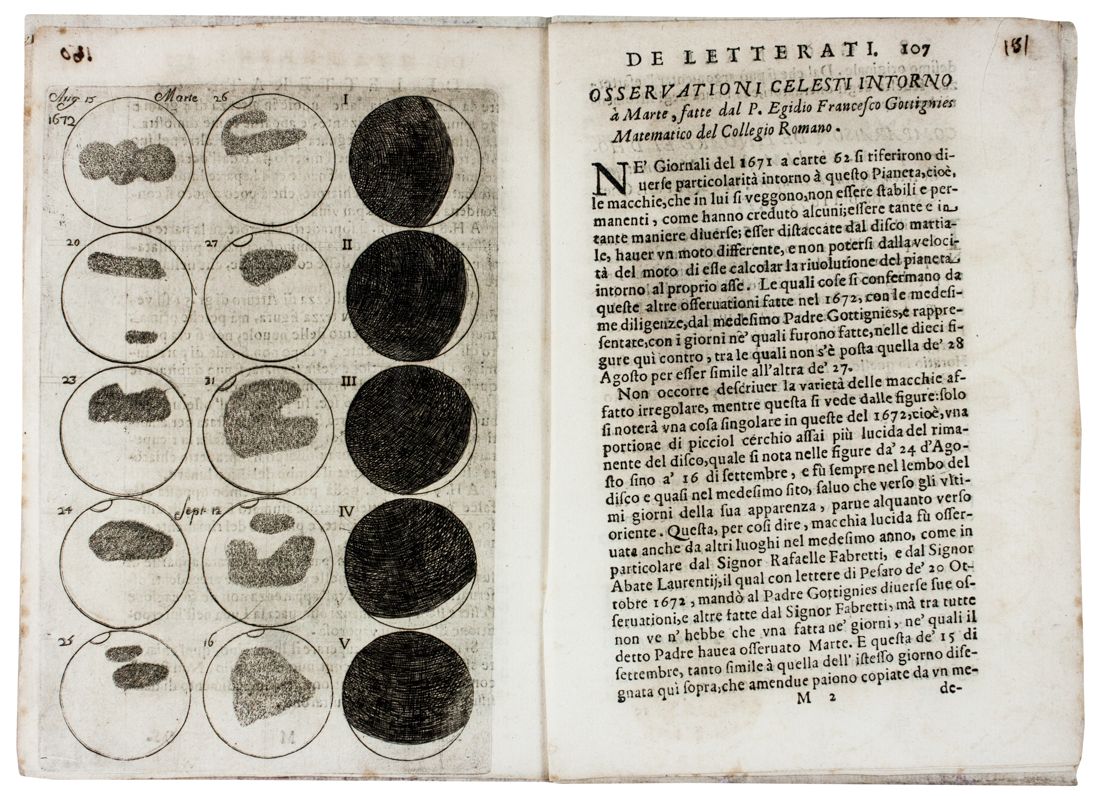 180
Aug. 15
1672
Marte 26
I
20
27
II
23
31
III
24
Sept. 12
IV
25
16
V
181
DE LETTERATI. 107
OSSERVATIONI CELESTI INTORNO
à Marte, fatte dal P. Egidio Franceſco Gottignies
Matematico del Collegio Romano.
NE' Giornali del 1671 a carte 62 ſi riferirono di-
uerſe particolarità intorno à queſto Pianeta, cioè,
le macchie, che in lui ſi veggono, non eſſere ſtabili e per-
manenti, come hanno creduto alcuni; eſſere tante e in
tante maniere diuerſe; eſſer diſtaccate dal diſco martia-
le, hauer vn moto differente, e non poterſi dalla veloci-
tà del moto di eſſe calcolar la riuolutione del pianeta
intorno al proprio aſſe. Le quali coſe ſi confermano da
queſte altre oſſeruationi fatte nel 1672, con le medeſi-
me diligenze, dal medeſimo Padre Gottignies, e rappre-
ſentate, con i giorni ne' quali furono fatte, nelle dieci fi-
gure quì contro, tra le quali non s'è poſta quella de' 28
Agoſto per eſſer ſimile all'altra de' 27.
Non occorre deſcriuer la varietà delle macchie af-
fatto irregolare, mentre queſta ſi vede dalle figure: ſolo
ſi noterà vna coſa ſingolare in queſte del 1672, cioè, vna
portione di picciol cerchio aſſai più lucida del rima-
nente del diſco, quale ſi nota nelle figure da' 24 d'Ago-
ſto ſino a' 16 di ſettembre, e fù ſempre nel lembo del
diſco e quaſi nel medeſimo ſito, ſaluo che verſo gli vlti-
mi giorni della ſua apparenza, parue alquanto verſo
oriente. Queſta, per coſi dire, macchia lucida fù oſſer-
uata anche da altri luoghi nel medeſimo anno, come in
particolare dal Signor Rafaelle Fabretti, e dal Signor
Abate Laurentij, il qual con lettere di Peſaro de' 20 Ot-
tobre 1672, mandò al Padre Gottignies diuerſe ſue oſ-
ſeruationi, e altre fatte dal Signor Fabretti, mà tra tutte
non ve n' hebbe che vna fatta ne' giorni, ne' quali il
detto Padre hauea oſſeruato Marte. E queſta de' 15 di
ſettembre, tanto ſimile à quella dell' iſteſſo giorno diſe-
gnata quì ſopra, che amendue paiono copiate da vn me-
M 2
de-